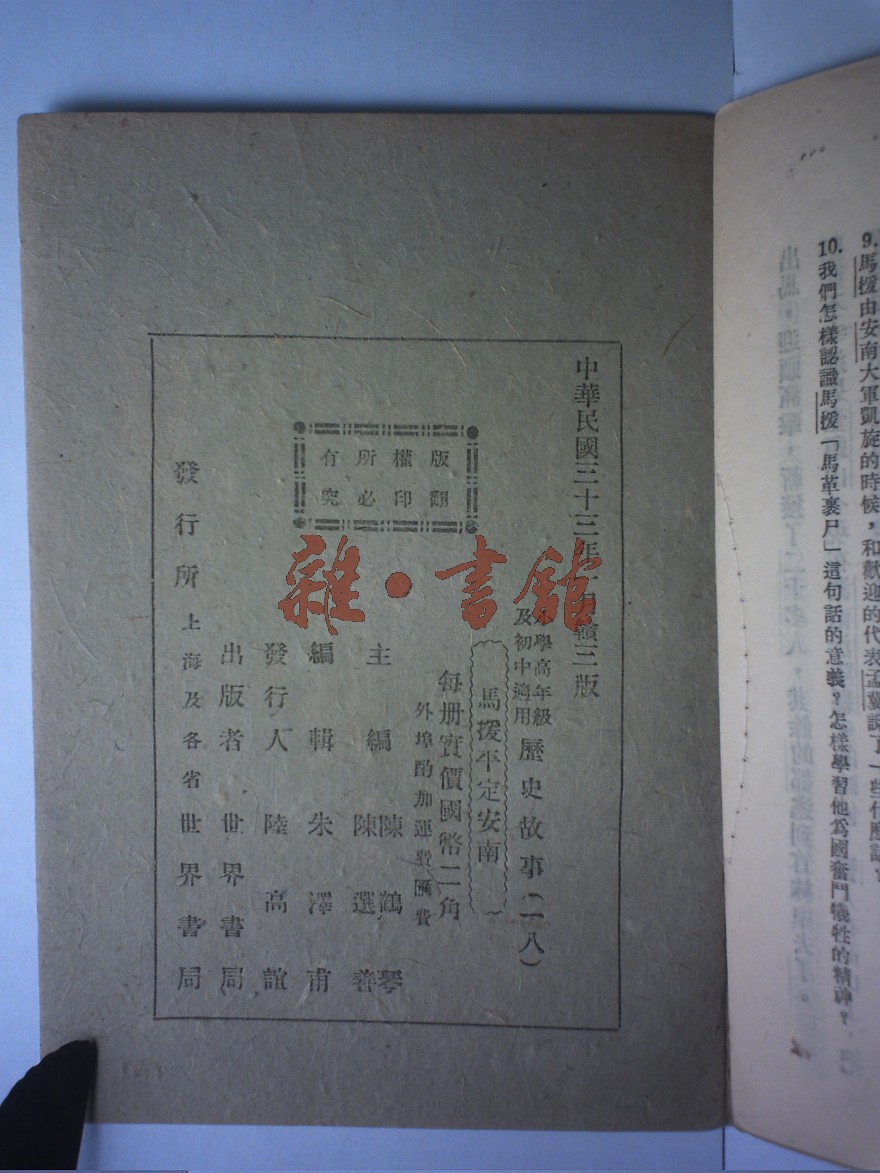 9.馬援由安南大軍凱旋的時候，和歡迎的代表孟冀說了一些什麼話？
10.我們怎樣認識馬援「馬革裹尸」這句話的意義？怎樣學習他爲國奮鬥犧牲的精神？
中華民國三十三年 月 三版
小學高年級
及初中適用
歷史故事（二八）
馬援平定安南
每册實價國幣二角
外埠酌加運費匯費
版權所有
翻印必究
主編 陳鶴琴
陳選善
編輯 朱澤甫
發行人 陸高誼
出版者 世界書局
發行所 上海及各省世界書局
雜·書館